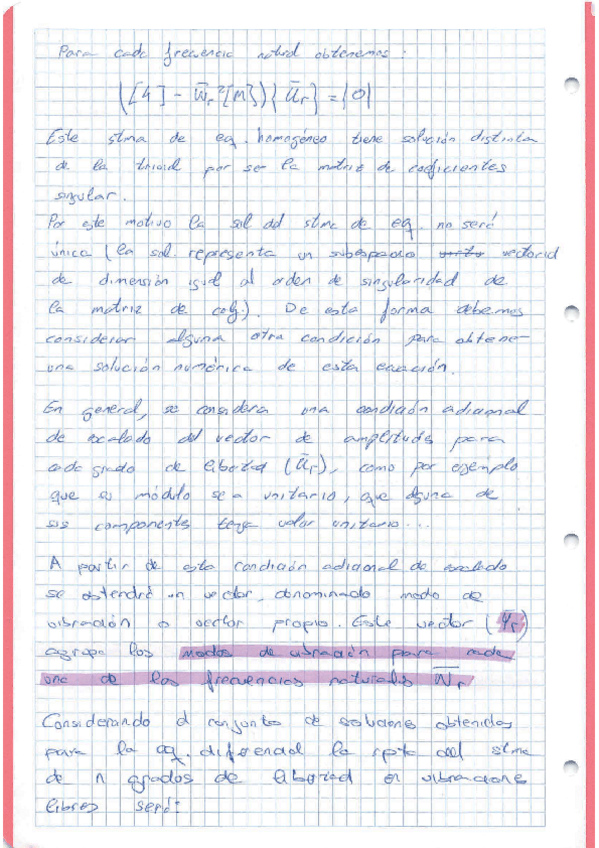 Para cada frecuencia natural obtenemos:
([K] - ω̄r²[M]){ūr} = {0}
Este stma de eq. homogéneo tiene solución distinta
de la trivial por ser la matriz de coeficientes
singular.
Por este motivo la sol del stma de eq. no será
única (la sol. representa un subespacio vectorial
de dimensión igual al orden de singularidad de
la matriz de coef.). De esta forma debemos
considerar alguna otra condición para obtene-
una solución numérica de esta ecuación.
En general, se considera una condición adicional
de escalado del vector de amplitudes para
cada grado de libertad (ūr), como por ejemplo
que su módulo sea unitario, que alguna de
sus componentes tenga valor unitario...
A partir de esta condición adicional de escalado
se obtendrá un vector, denominado modo de
vibración o vector propio. Este vector (Ψr)
agrupa los modos de vibración para cada
una de las frecuencias naturales W̄r
Considerando el conjunto de soluciones obtenidas
para la eq. diferencial la rpta del stma
de n grados de libertad en vibraciones
libres será: